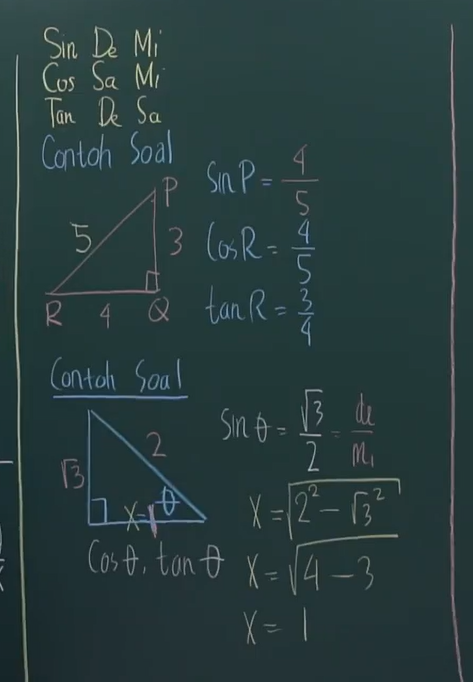 Sin De Mi
Cos Sa Mi
Tan De Sa
Contoh Soal
P
5
3
R 4 Q
Sin P = 4/5
Cos R = 4/5
tan R = 3/4
Contoh Soal
√3
2
θ
x=1
Cos θ, tan θ
Sin θ = √3/2 = de/mi
x = √2² - √3²
x = √4 - 3
x = 1